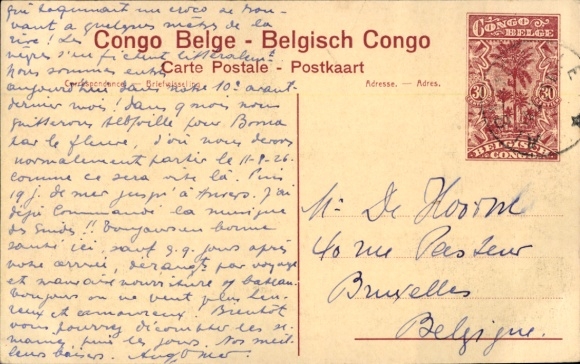 qui taquinait un croco se trou-
vant à quelques mètres de la
rive! Les
nègres s'en fichent littéralemt.
Nous sommes entrés
aujourd'hui dans notre 10e avant-
dernier mois! dans 9 mois nous
quitterons Albertville pour Boma
par le fleuve, d'où nous devons
normalement partir le 11-8-26.
comme ce sera vite là. Puis
19 j. de mer jusqu'à Anvers. J'ai
déjà commandé la musique
des Guides!! Toujours en bonne
santé ici, sauf q.q. jours après
notre arrivée, dérangés par voyage
et mauvaise nourriture of bateau.
Toujours on ne peut plus heu-
reux et amoureux! Bientôt
vous pourrez décompter les se-
maines, puis les jours. Nos meil-
leurs baisers.
Congo Belge - Belgisch Congo
Carte Postale - Postkaart
Correspondance. — Briefwisseling.
Adresse. — Adres.
CONGO BELGE
30 30
BELGISCH CONGO
Mr De Hoorne
40 rue Pasteur
Bruxelles
Belgique.